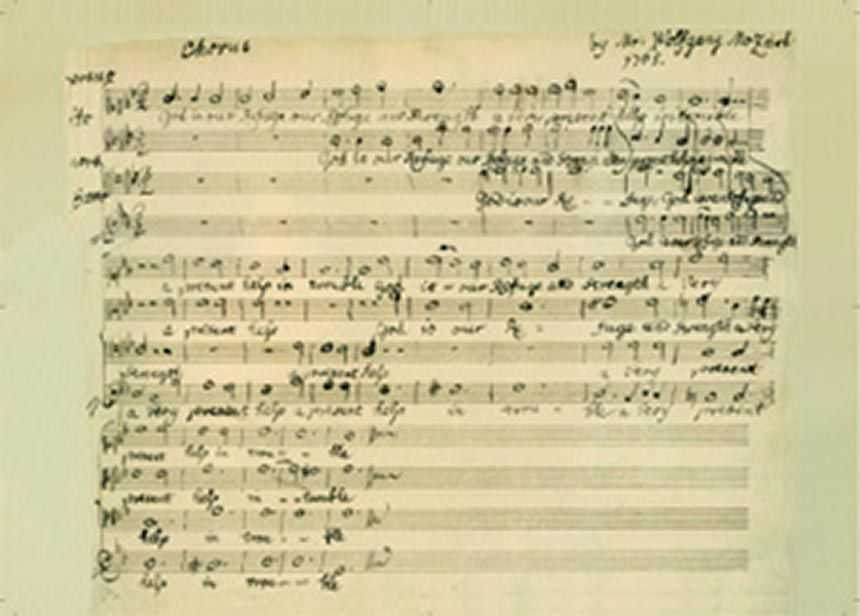 Chorus
by Mr. Wolfgang Mozart
1765.
God is our Refuge our Refuge and Strength a very present help in trouble
God is our Refuge our Refuge and
God is our Re - - fuge, God is our Refuge and
God is our refuge and Strength
a present help in trouble God is - our Refuge and strength a very
a present help God is our Re - fuge and strength a very
strength a present help a very present
a very present help a present help in trou - ble a very present
present help in trou - - ble
present help in - - trouble
help in trou - - ble
help in trou - - ble